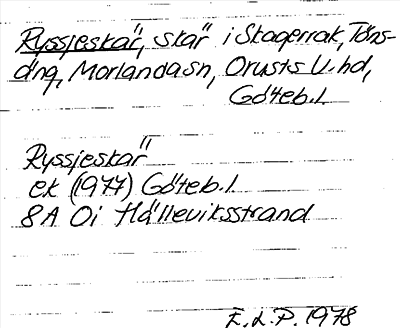 Ryssjeskär, skär i Skagerrak, Töns-
äng, Morlanda sn, Orusts V. hd,
Göteb.l.
Ryssjeskär
ek (1977) Göteb.l.
8A Oi Hälleviksstrand
E.L.P. 1978